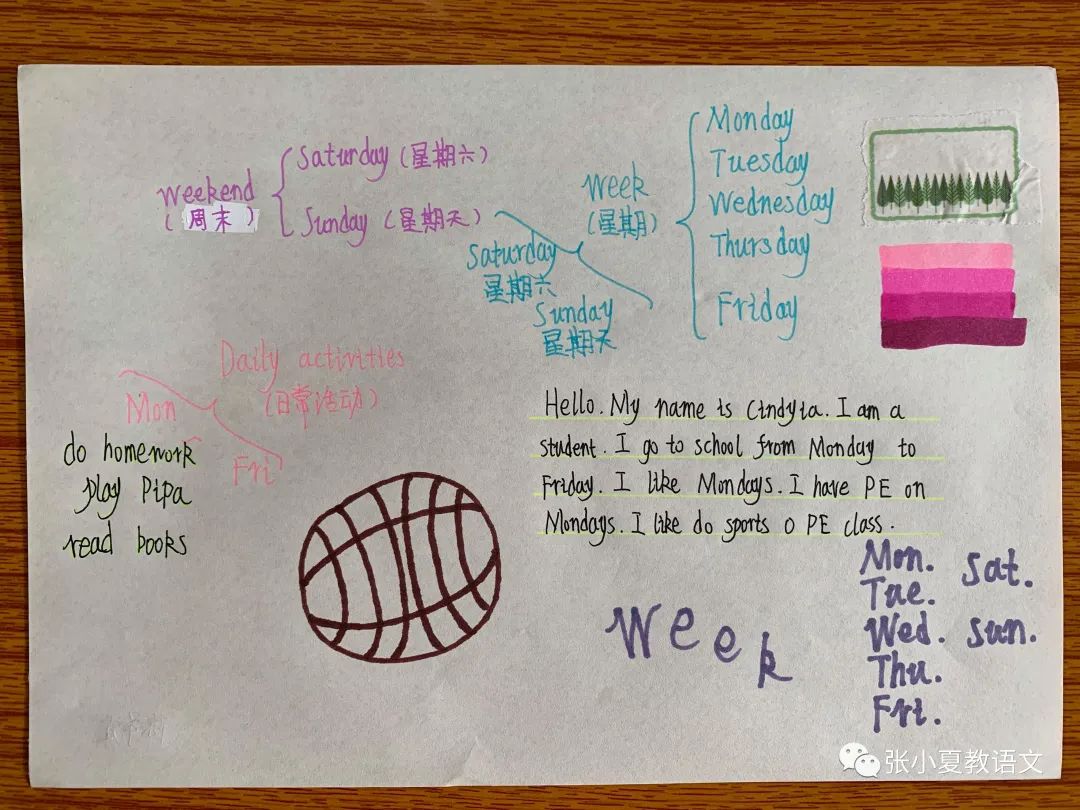 weekend
(周末)
Saturday (星期六)
Sunday (星期天)
Week
(星期)
Monday
Tuesday
Wednesday
Thursday
Friday
Saturday
星期六
Sunday
星期天
Daily activities
(日常活动)
Mon
Fri
do homework
play Pipa
read books
Hello. My name is Cindyia. I am a
student. I go to school from Monday to
Friday. I like Mondays. I have PE on
Mondays. I like do sports o PE class.
Week
Mon.
Tue.
Wed.
Thu.
Fri.
Sat.
Sun.
张小夏教语文